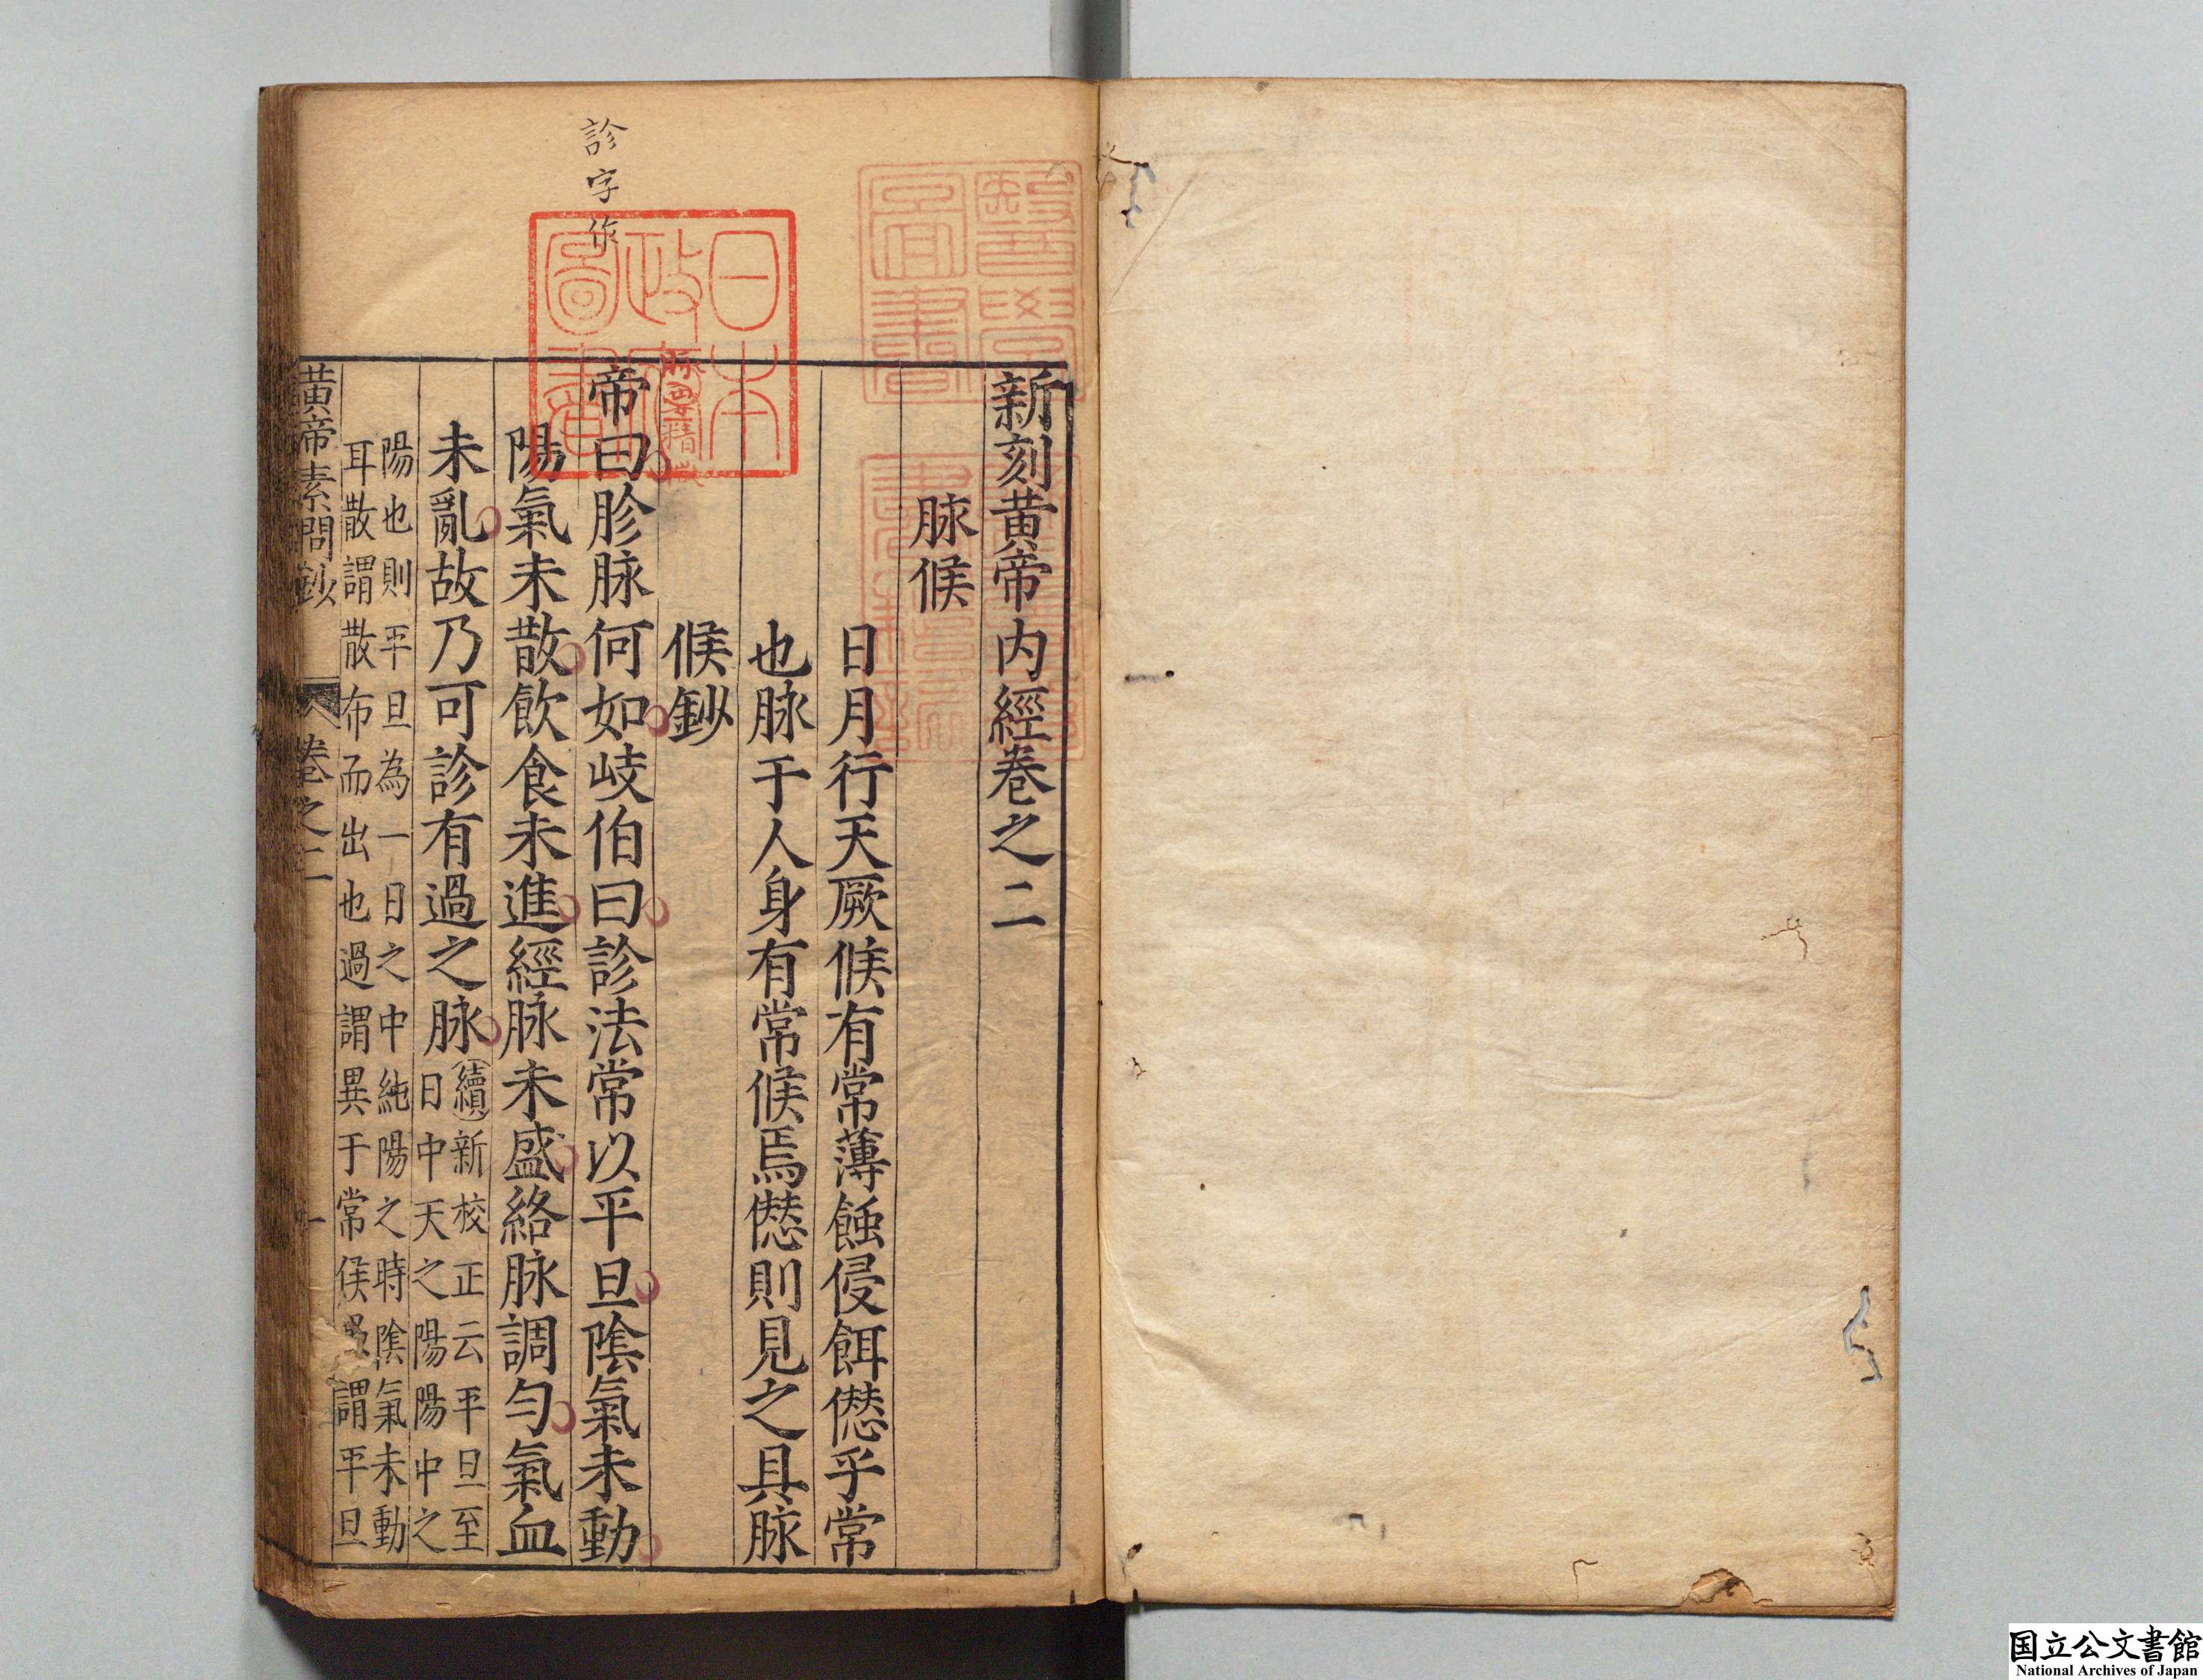 新刻黃帝内經卷之二
脉候
日月行天厥候有常薄蝕侵餌僽乎常
也脉于人身有常候焉僽則見之具脉
候鈔
帝曰胗脉何如岐伯曰診法常以平旦陰氣未動
陽氣未散飲食未進經脉未盛絡脉調勻氣血
未亂故乃可診有過之脉
續新校正云平旦至
日中天之陽陽中之
陽也則平旦為一日之中純陽之時陰氣未動
耳散謂散布而出也過謂異于常候謂平旦
黃帝素問鈔
卷之二
一
診字作
脉要精
日本
政府
圖書
醫學
圖書
国立公文書館
National Archives of Japan